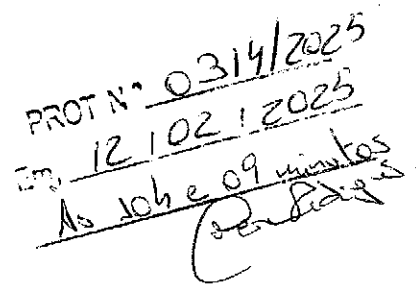 PROT Nº 0314/2025
Em, 12 / 02 / 2025
Às 10h e 09 minutos